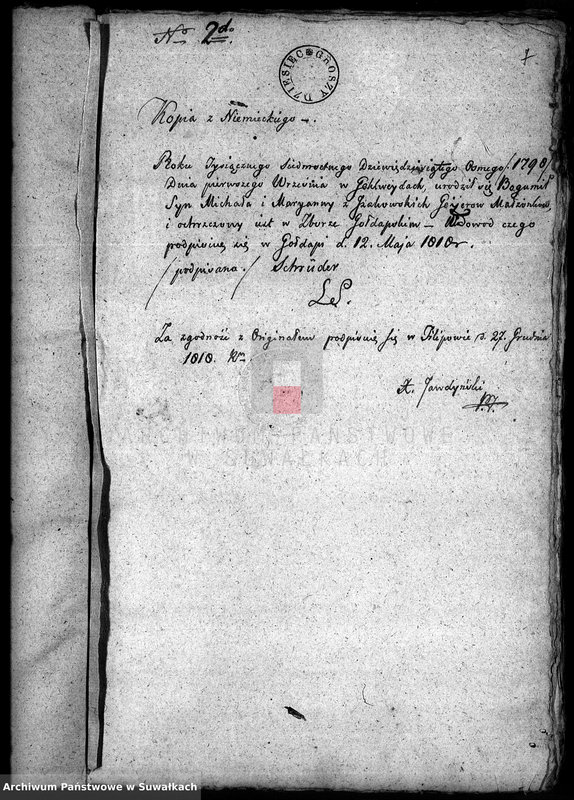 No 2do
1
DZIESIĘC GROSZY
Kopia z Niemieckiego
Roku Tysiącznego Siedmsetnego Dziewięćdziesiątego Osmego /1798/
Dnia pierwszego Września w urodził się Bogumił
Syn Michała i Maryanny z Małżonków
i ochrzczony jest w Zborze Gołdapskim — Na dowod czego
podpisuię się w Gołdapi d. 12. Maja 1818 r.
/podpisano/ Schröder
LS.
Za zgodność z Originałem podpisuię się w Filipowie d. 27. Grudnia
1818. Rm
A. Jawdyński
ARCHIWUM PAŃSTWOWE
W SUWAŁKACH
Archiwum Państwowe w Suwałkach